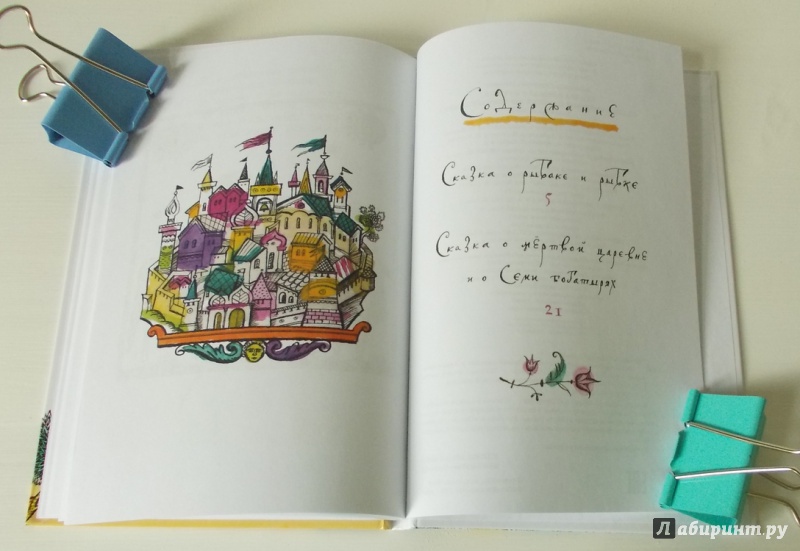 Содержание
Сказка о рыбаке и рыбке
5
Сказка о мёртвой царевне
и о Семи богатырях
21
Лабиринт.ру